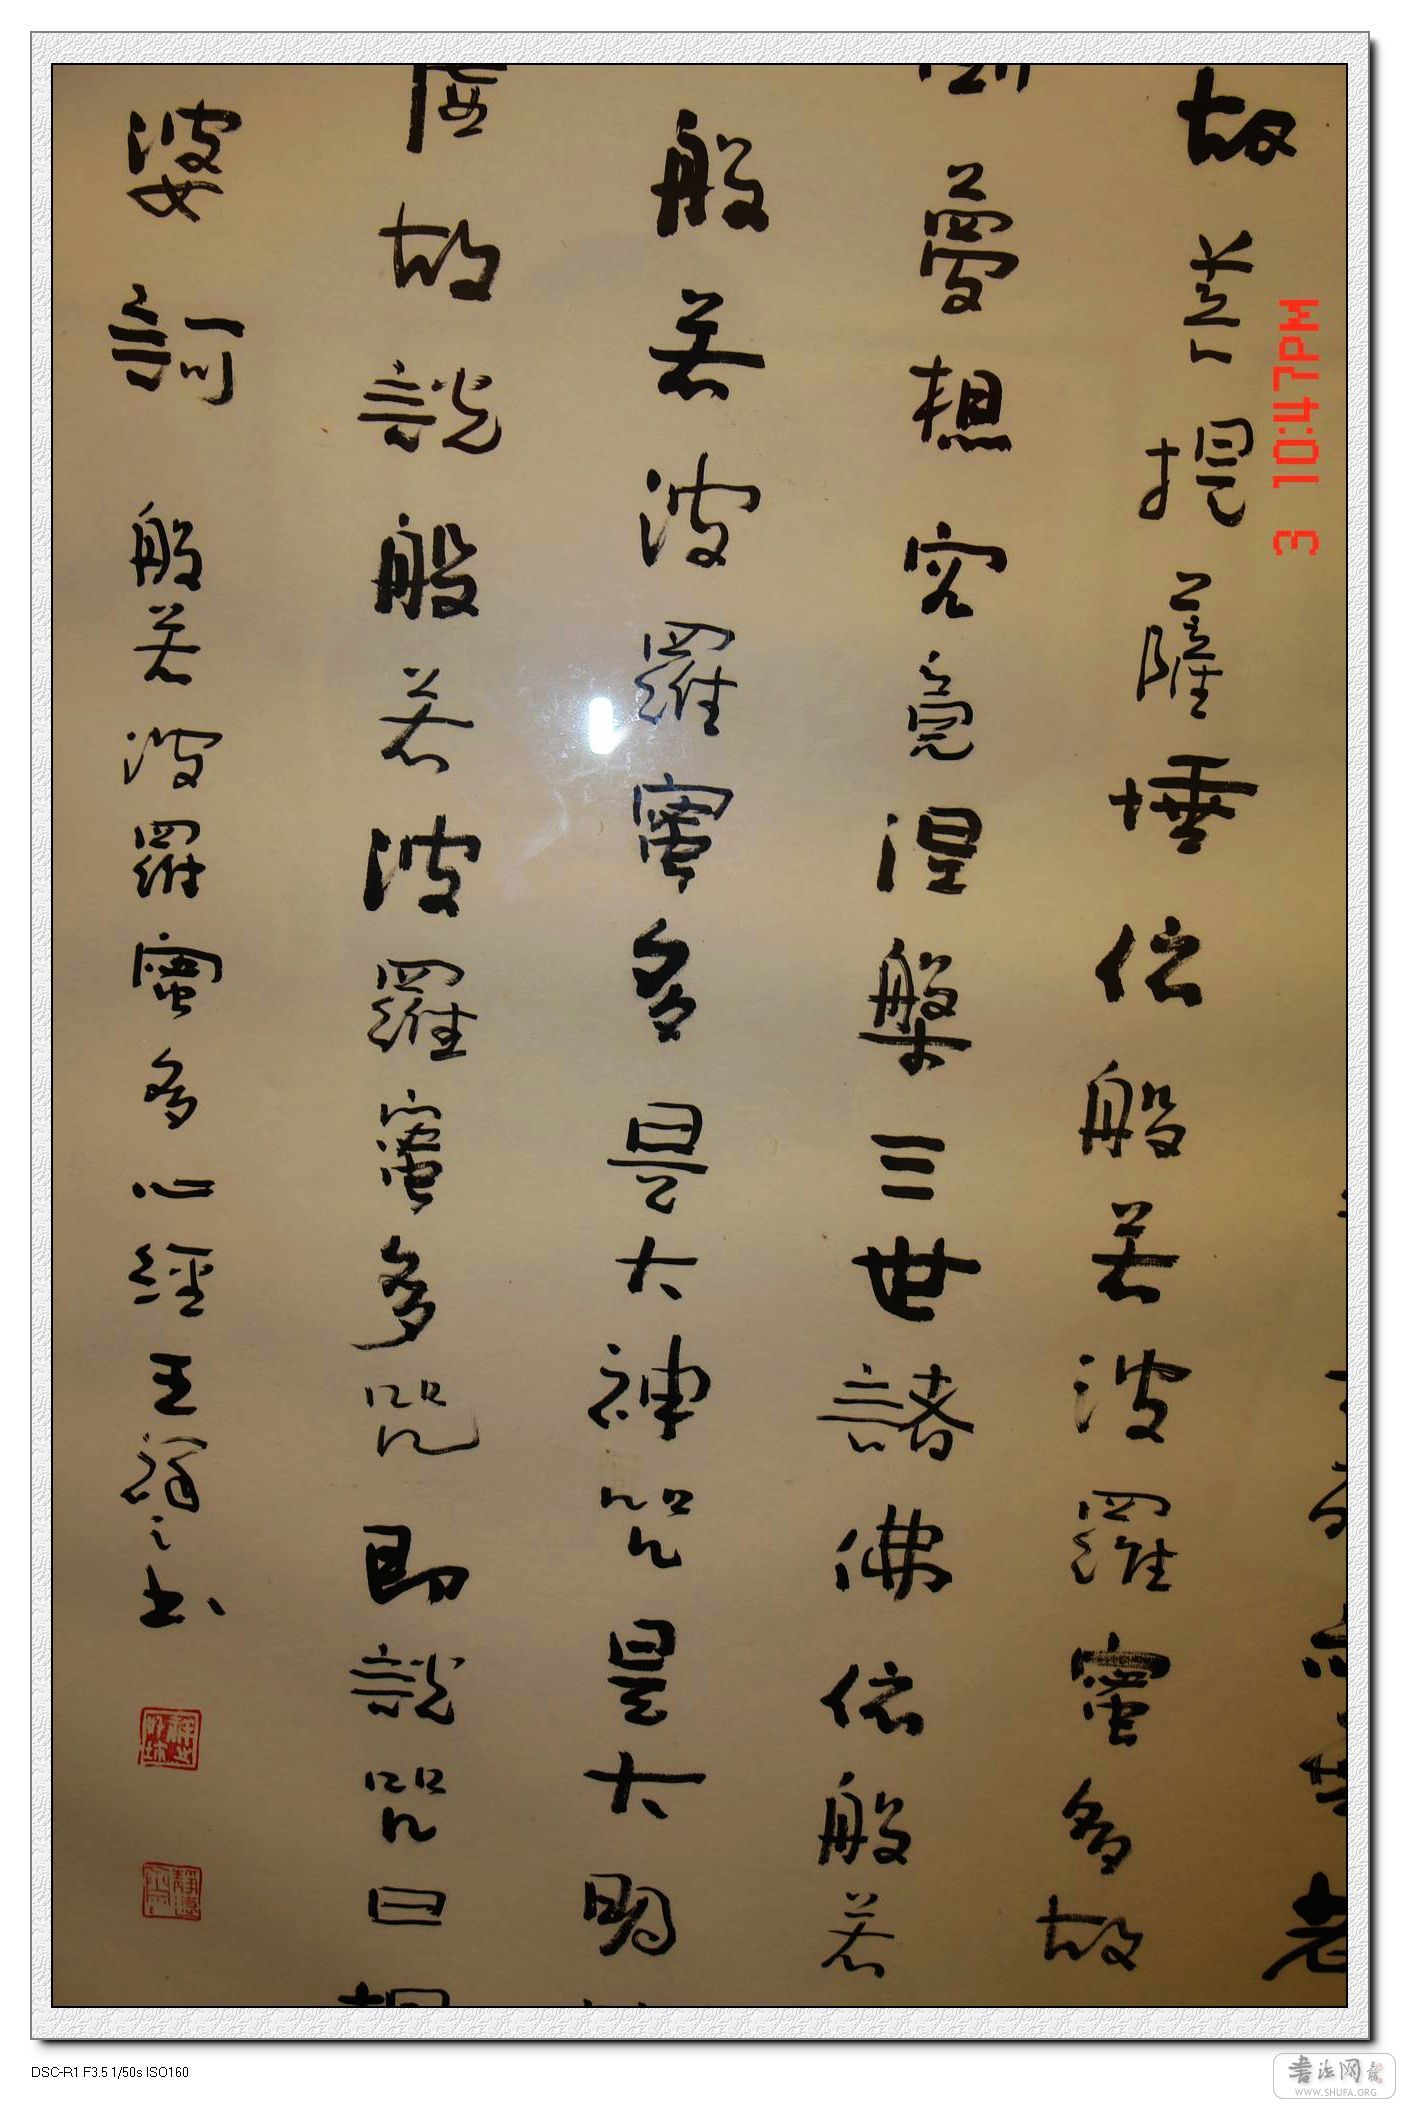 故菩提薩埵依般若波羅蜜多故
夢想究竟涅槃三世諸佛依般若
般若波羅蜜多是大神咒是大明
虛故說般若波羅蜜多咒即說咒曰揭
婆訶 般若波羅蜜多心經 王 之書
3 10:47PM
DSC-R1 F3.5 1/50s ISO160
书法网
WWW.SHUFA.ORG